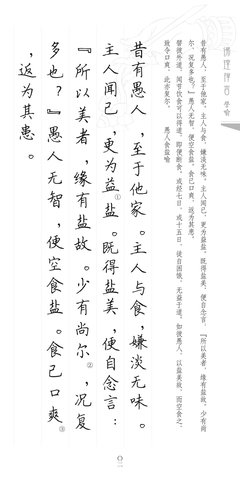 昔有愚人，至于他家。主人与食，嫌淡无味。主人闻已，更为益盐。既得盐美，便自念言：『所以美者，缘有盐故。少有尚
尔，况复多也？』愚人无智，便空食盐。食已口爽，返为其患。
譬彼外道，闻节饮食可以得道，即便断食，或经七日，或十五日，徒自困饿，无益于道。如彼愚人，以盐美故，而空食之，
致令口爽，此亦复尔。 愚人食盐喻
昔有愚人，至于他家。主人与食，嫌淡无味。
主人闻已，更为益盐①。既得盐美，便自念言：
『所以美者，缘有盐故。少有尚尔②，况复
多也？』愚人无智，便空食盐。食已口爽③，
返为其患。